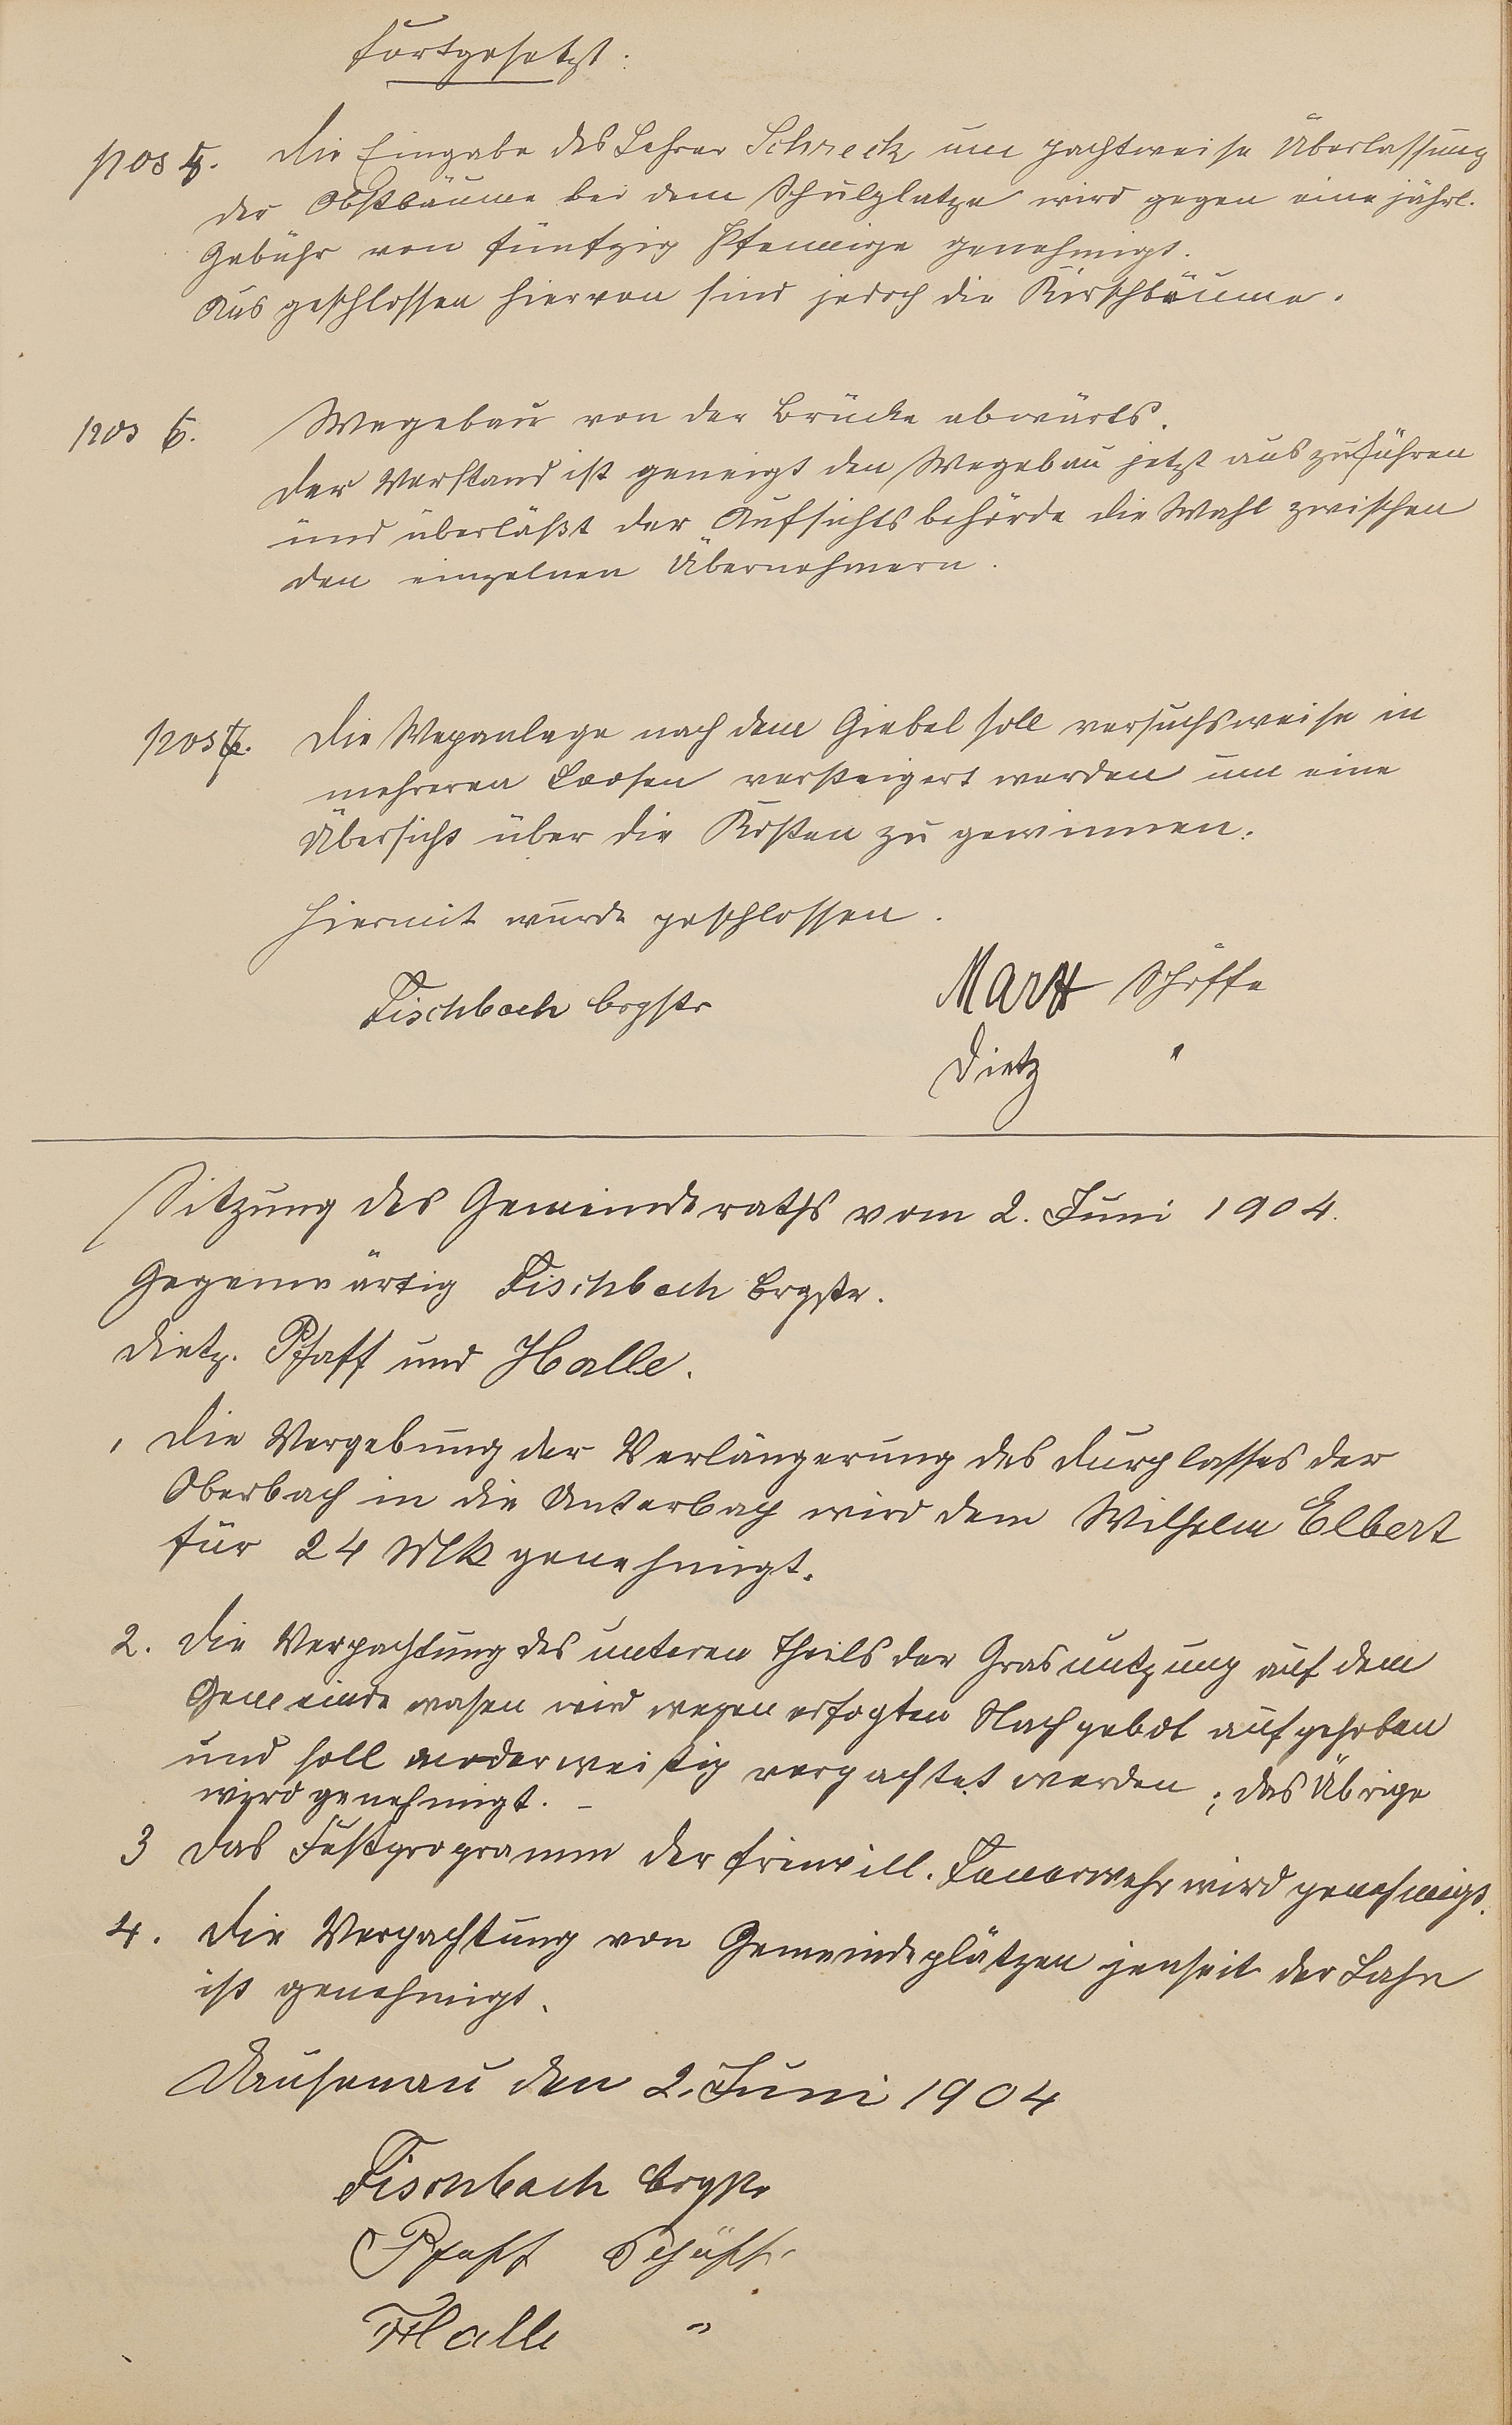 Fortgesetzt:
pos 5. Die Eingabe des Lehrer Schreck um pachtweise Überlassung
der Obstbäume bei dem Schulplatze wird gegen eine jährl.
Gebühr von fünfzig Pfennige genehmigt.
Ausgeschlossen hiervon sind jedoch die Kirschbäume.
pos 6. Wegebau von der Brücke abwärts.
Der Vorstand ist geneigt den Wegebau jetzt auszuführen
und überläßt der Aufsichtsbehörde die Wahl zwischen
den einzelnen Übernehmern.
pos 7. Die Weganlage nach dem Giebel soll versuchsweise in
mehreren Loosen versteigert werden um eine
Übersicht über die Kosten zu gewinnen.
Hiermit wurde geschlossen.
Fischbach Brgstr Marx Schöffe
Dietz "
Sitzung des Gemeinderaths vom 2. Juni 1904.
Gegenwärtig Fischbach Brgstr.
Dietz. Pfaff und Halle.
1 Die Vergebung der Verlängerung des Durchlasses der
Oberbach in die Unterbach wird dem Wilhelm Elbert
für 24 Mk genehmigt.
2. Die Verpachtung des unteren Theils der Grasnutzung auf dem
Gemeindewasen wird wegen erfogten Nachgebot aufgehoben
und soll anderweitig verpachtet werden; das Übrige
wird genehmigt. –
3 Das Festprogramm der freiwill. Feuerwehr wird genehmigt.
4. Die Verpachtung von Gemeindeplätzen jenseit der Lahn
ist genehmigt.
Dausenau den 2. Juni 1904
Fischbach Brgstr
Pfaff Schöff.
Halle "